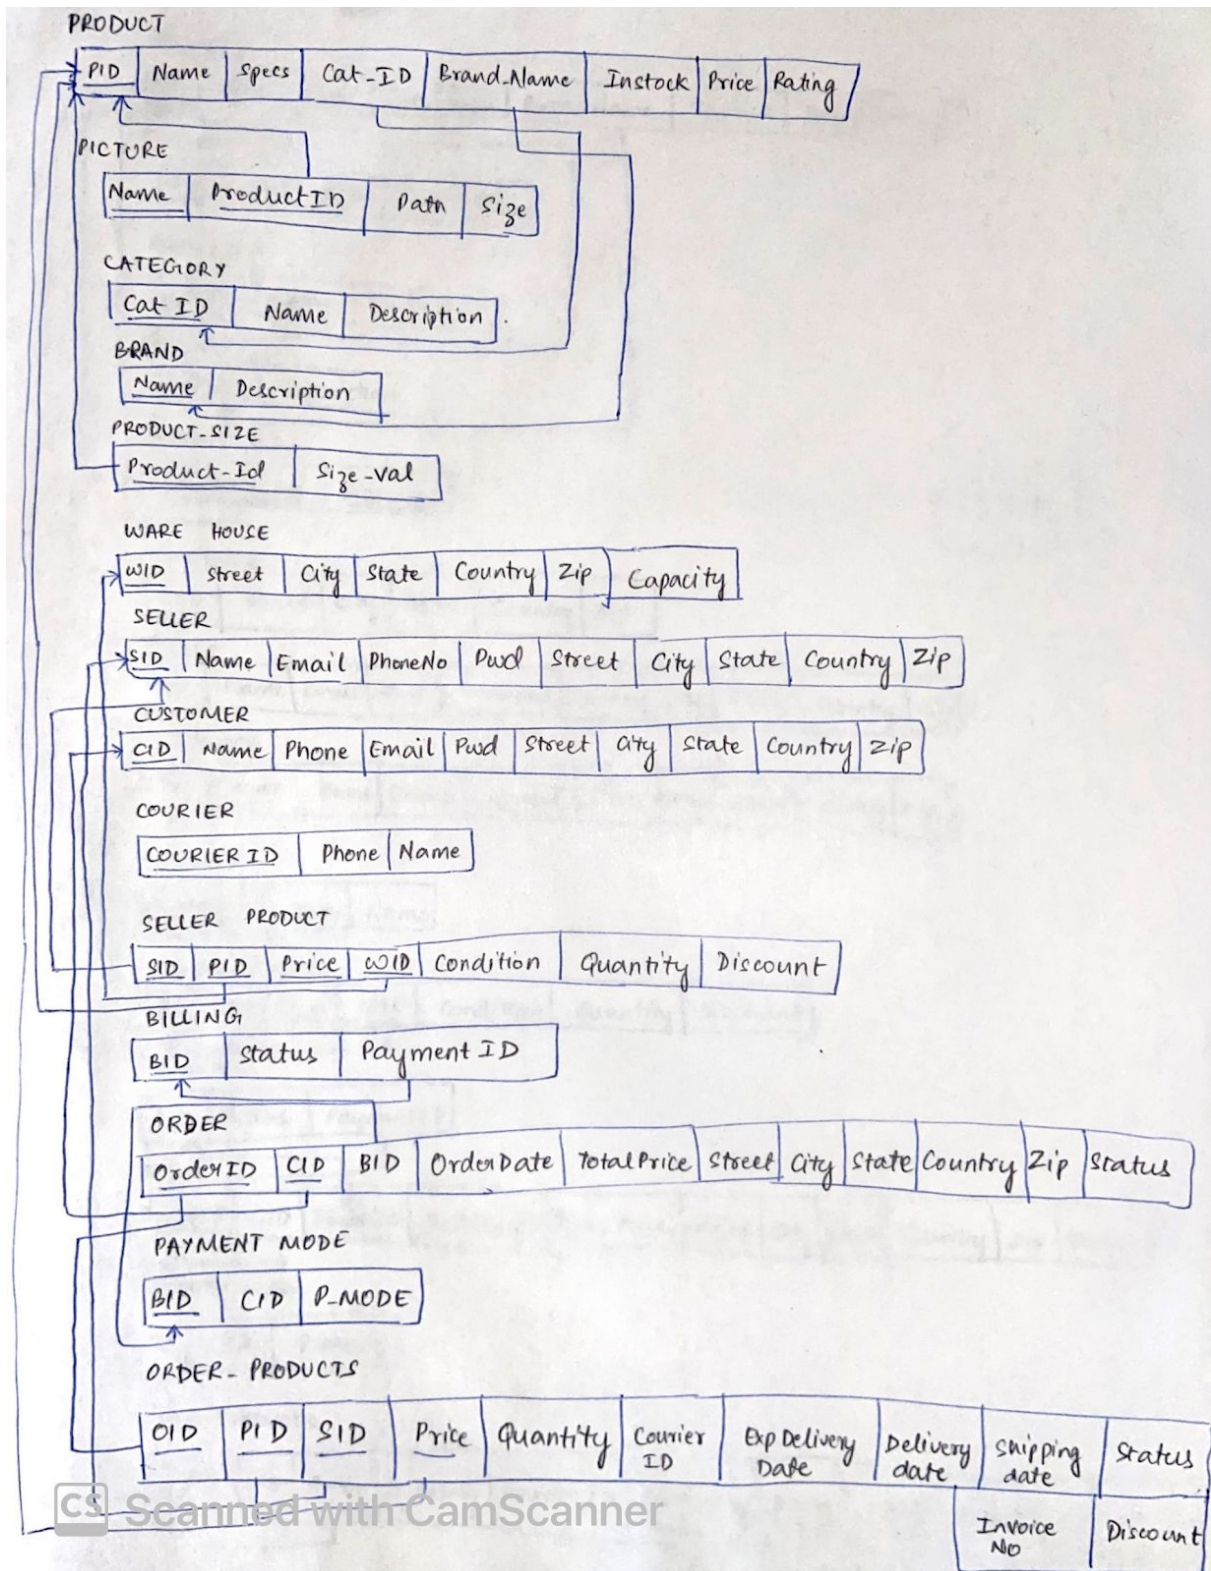 PRODUCT
PID Name Specs Cat-ID Brand-Name Instock Price Rating
PICTURE
Name ProductID Path Size
CATEGORY
Cat ID Name Description
BRAND
Name Description
PRODUCT-SIZE
Product-Id Size-val
WARE HOUSE
WID Street City State Country Zip Capacity
SELLER
SID Name Email PhoneNo Pwd Street City State Country Zip
CUSTOMER
CID Name Phone Email Pwd Street City State Country Zip
COURIER
COURIER ID Phone Name
SELLER PRODUCT
SID PID Price WID Condition Quantity Discount
BILLING
BID Status Payment ID
ORDER
OrderID CID BID OrderDate TotalPrice Street City State Country Zip Status
PAYMENT MODE
BID CID P-MODE
ORDER- PRODUCTS
OID PID SID Price Quantity Courier ID Exp Delivery Date Delivery date Shipping date Status
CS Scanned with CamScanner
Invoice No Discount